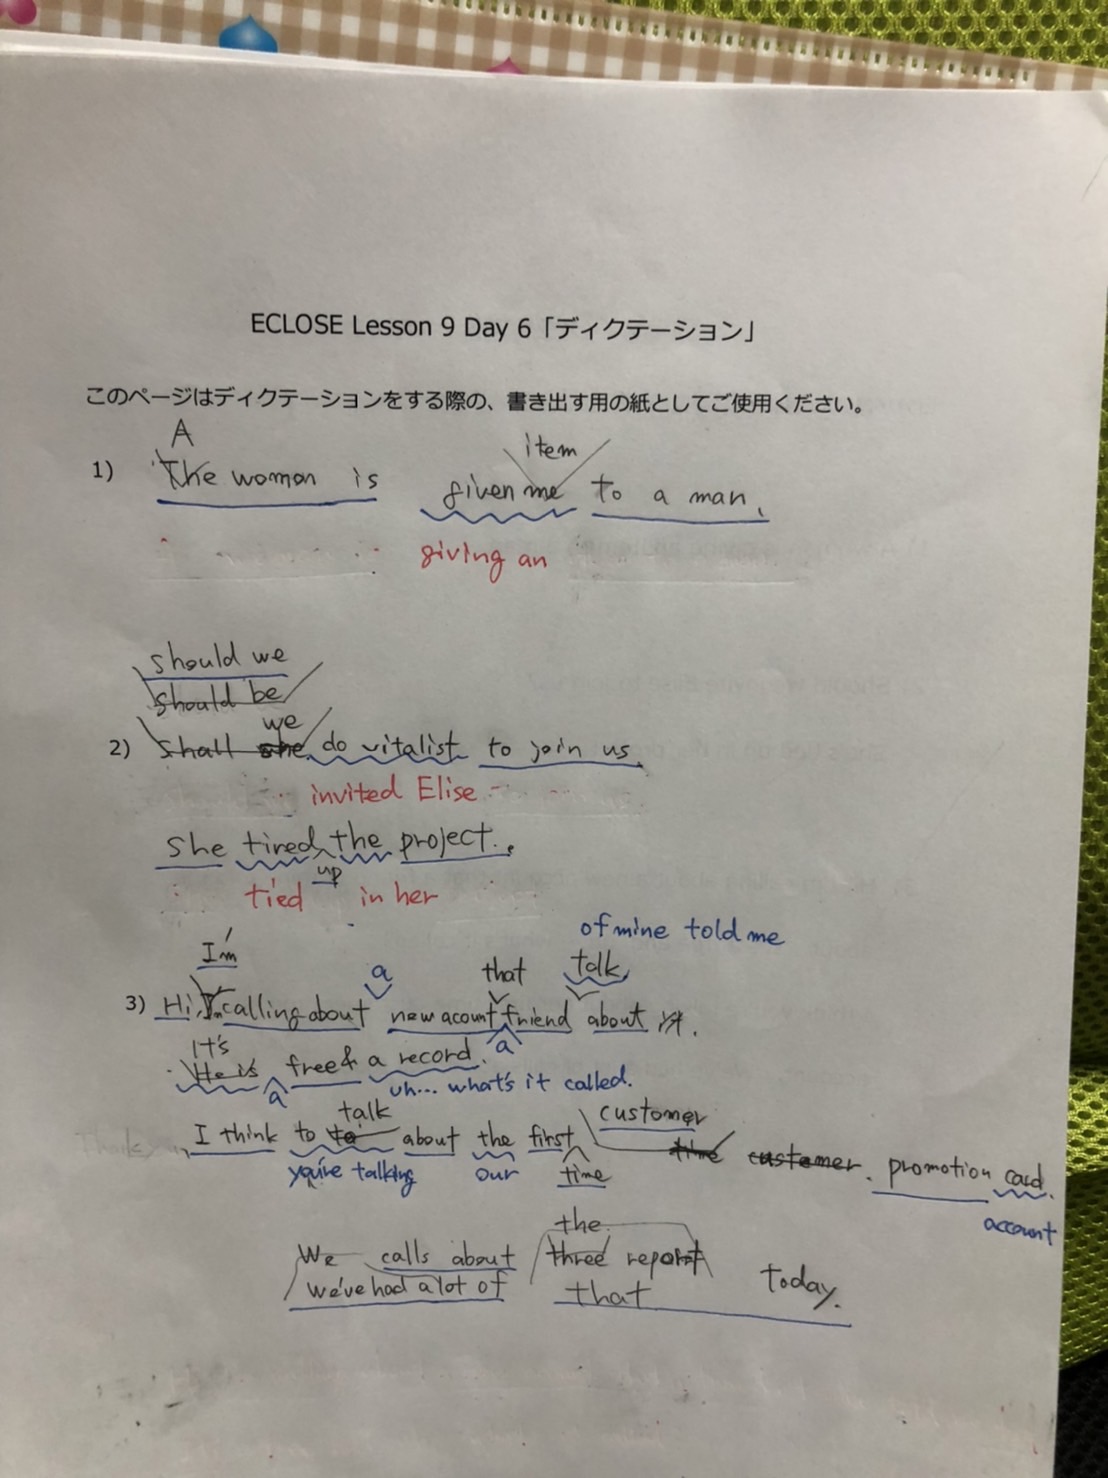 ECLOSE Lesson 9 Day 6「ディクテーション」
このページはディクテーションをする際の、書き出す用の紙としてご使用ください。
A
item
1) The woman is given me to a man.
giving an
should we
should be
we
2) shall she do vitalist to join us.
invited Elise
She tired the project.
up
tied in her
of mine told me
I'm
a that talk
3) Hi, I'm calling about new acount friend about it.
a
It's
He is free & a record.
a uh... what's it called.
talk customer
I think to to about the first time customer. promotion card.
you're talking our time
account
the
We calls about three report today.
we've had a lot of that